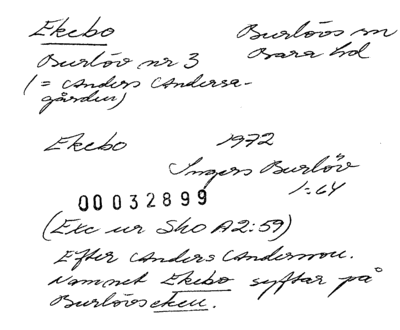 Ekebo Burlövs sn
Burlöv nr 3 Bara hd
(= Anders Andersa-
gården)
Ekebo 1972
Ingers Burlöv
1:64
00032899
(Exc ur Sko A2:59)
Efter Anders Andersson.
Namnet Ekebo syftar på
Burlövseken.